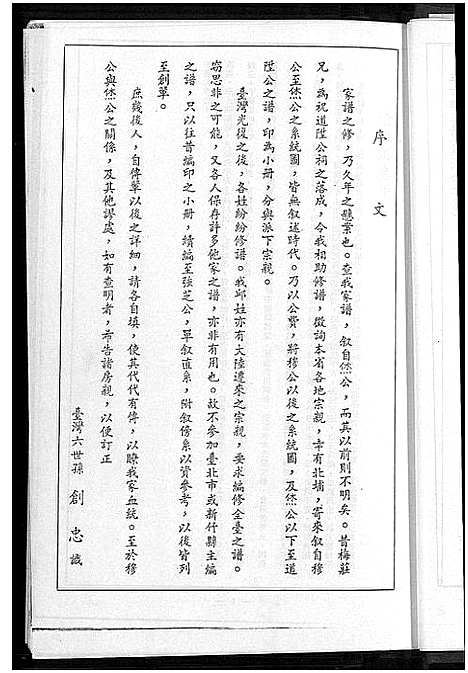 序文
家譜之修，乃久年之懸案也。查我家譜，叙自烋公，而其以前則不明矣。昔梅莊
兄，為祝道陞公祠之落成，令我相助修譜，徵詢本省各地宗親，幸有北埔，寄來叙自穆
公至烋公之系統圖，皆無叙述時代。乃以公費，將穆公以後之系統圖，及烋公以下至道
陞公之譜，印為小册，分與派下宗親。
臺灣光復之後，各姓紛紛修譜。我邱姓亦有大陸遷來之宗親，要求編修全臺之譜。
竊思非之可能，又各人保存許多他家之譜，亦非有用也。故不參加臺北市或新竹縣主編
之譜，只以往昔編印之小册，續編至強芝公，單叙直系，附叙傍系以資參考，以後皆列
至創輩。
庶幾後人，自傳輩以後之詳細，請各自填，使其代代有傳，以瞭我家血統。至於穆
公與烋公之關係，及其他謬處，如有查明者，希告諸房親，以便訂正
臺灣六世孫 創忠 識